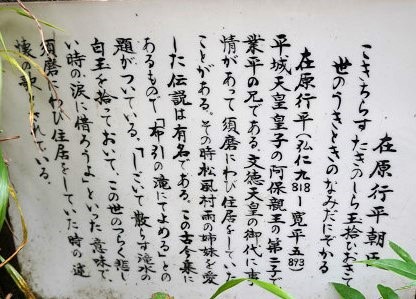 在原行平朝臣
こきちらすたきのしら玉拾ひおき
世のうきときのなみだにぞかる
在原行平(弘仁九818―寛平五893)
平城天皇皇子の阿保親王の第二子で
業平の兄である。文徳天皇の御代に事
情があって須磨にわび住居をしていた
ことがある。その時松風村雨の姉妹を愛
した伝説は有名である。この古今集に
あるもので「布引の滝にてよめる」との
題がついている。「しごいて散らす滝水の
白玉を拾っておいて、この世のつらく悲し
い時の涙に借ろうよ」といった意味で、
須磨にわび住居をしていた時の述
懐の歌 いる。